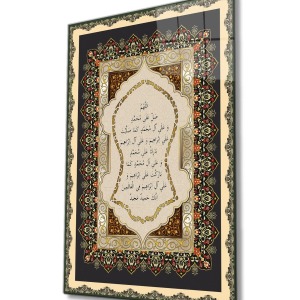 اللهم
صل على محمد
و على آل محمد كما صليت
على ابراهيم و على آل ابراهيم
بارك على محمد
و على آل محمد كما
باركت على ابراهيم و
على آل ابراهيم في العالمين
انك حميد مجيد